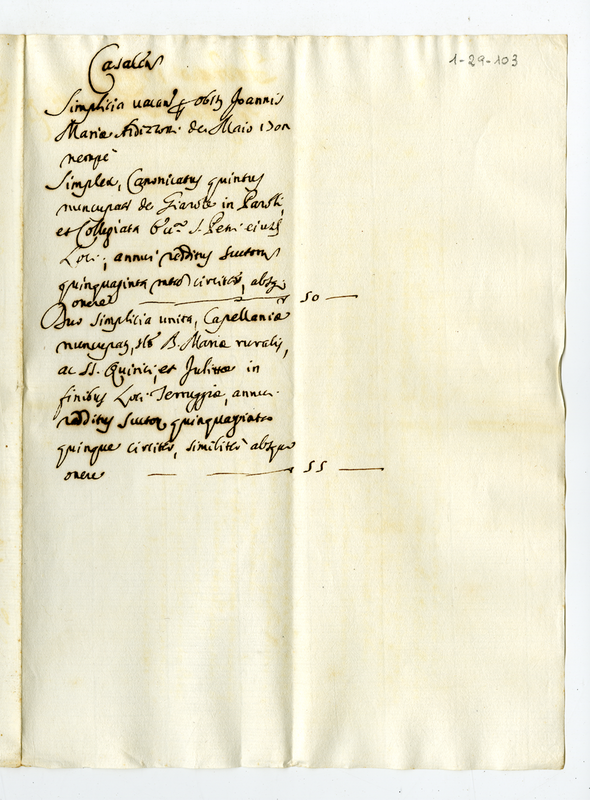 1-29-103
Casalen
Simplicia vacan p obitũ Joannis
Mariæ Ardizzoni de Maio 1701
nempè
Simplex, Canonicatus quintus
nuncupatȝ de Giarole in Paroli
et Collegiata S. Petri eiusd
Loci, annui redditus scutorȝ
quinquaginta circitèr, absqȝ
onere — 50 —
Duo simplicia unita, Capellaniæ
nuncupatȝ, B. Mariæ ruralis,
ac SS. Quirici, et Julittæ in
finibus Loci Terruggiæ, annui
redditus scutorȝ quinquaginta
quinque circitèr, similitèr absque
onere — 55 —